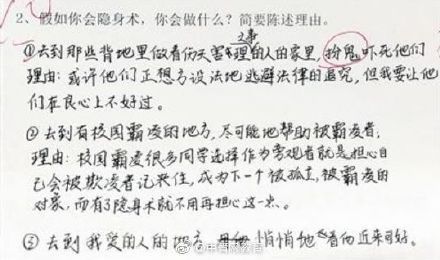 2、假如你会隐身术,你会做什么?简要陈述理由。
①去到那些背地里做着伤天害理之事的人的家里,扮鬼吓死他们
理由:或许他们正想方设法地逃避法律的追究,但我要让他
们在良心上不好过。
②去到有校园霸凌的地方,尽可能地帮助被霸凌者,
理由:校园霸凌很多同学选择作为旁观者就是担心自
己会被欺凌者记住,成为下一个被孤立,被霸凌的
对象,而有了隐身术就不用再担心这一点。
③去到我爱的人的地方 悄悄地看他近来可好。
@中国教育